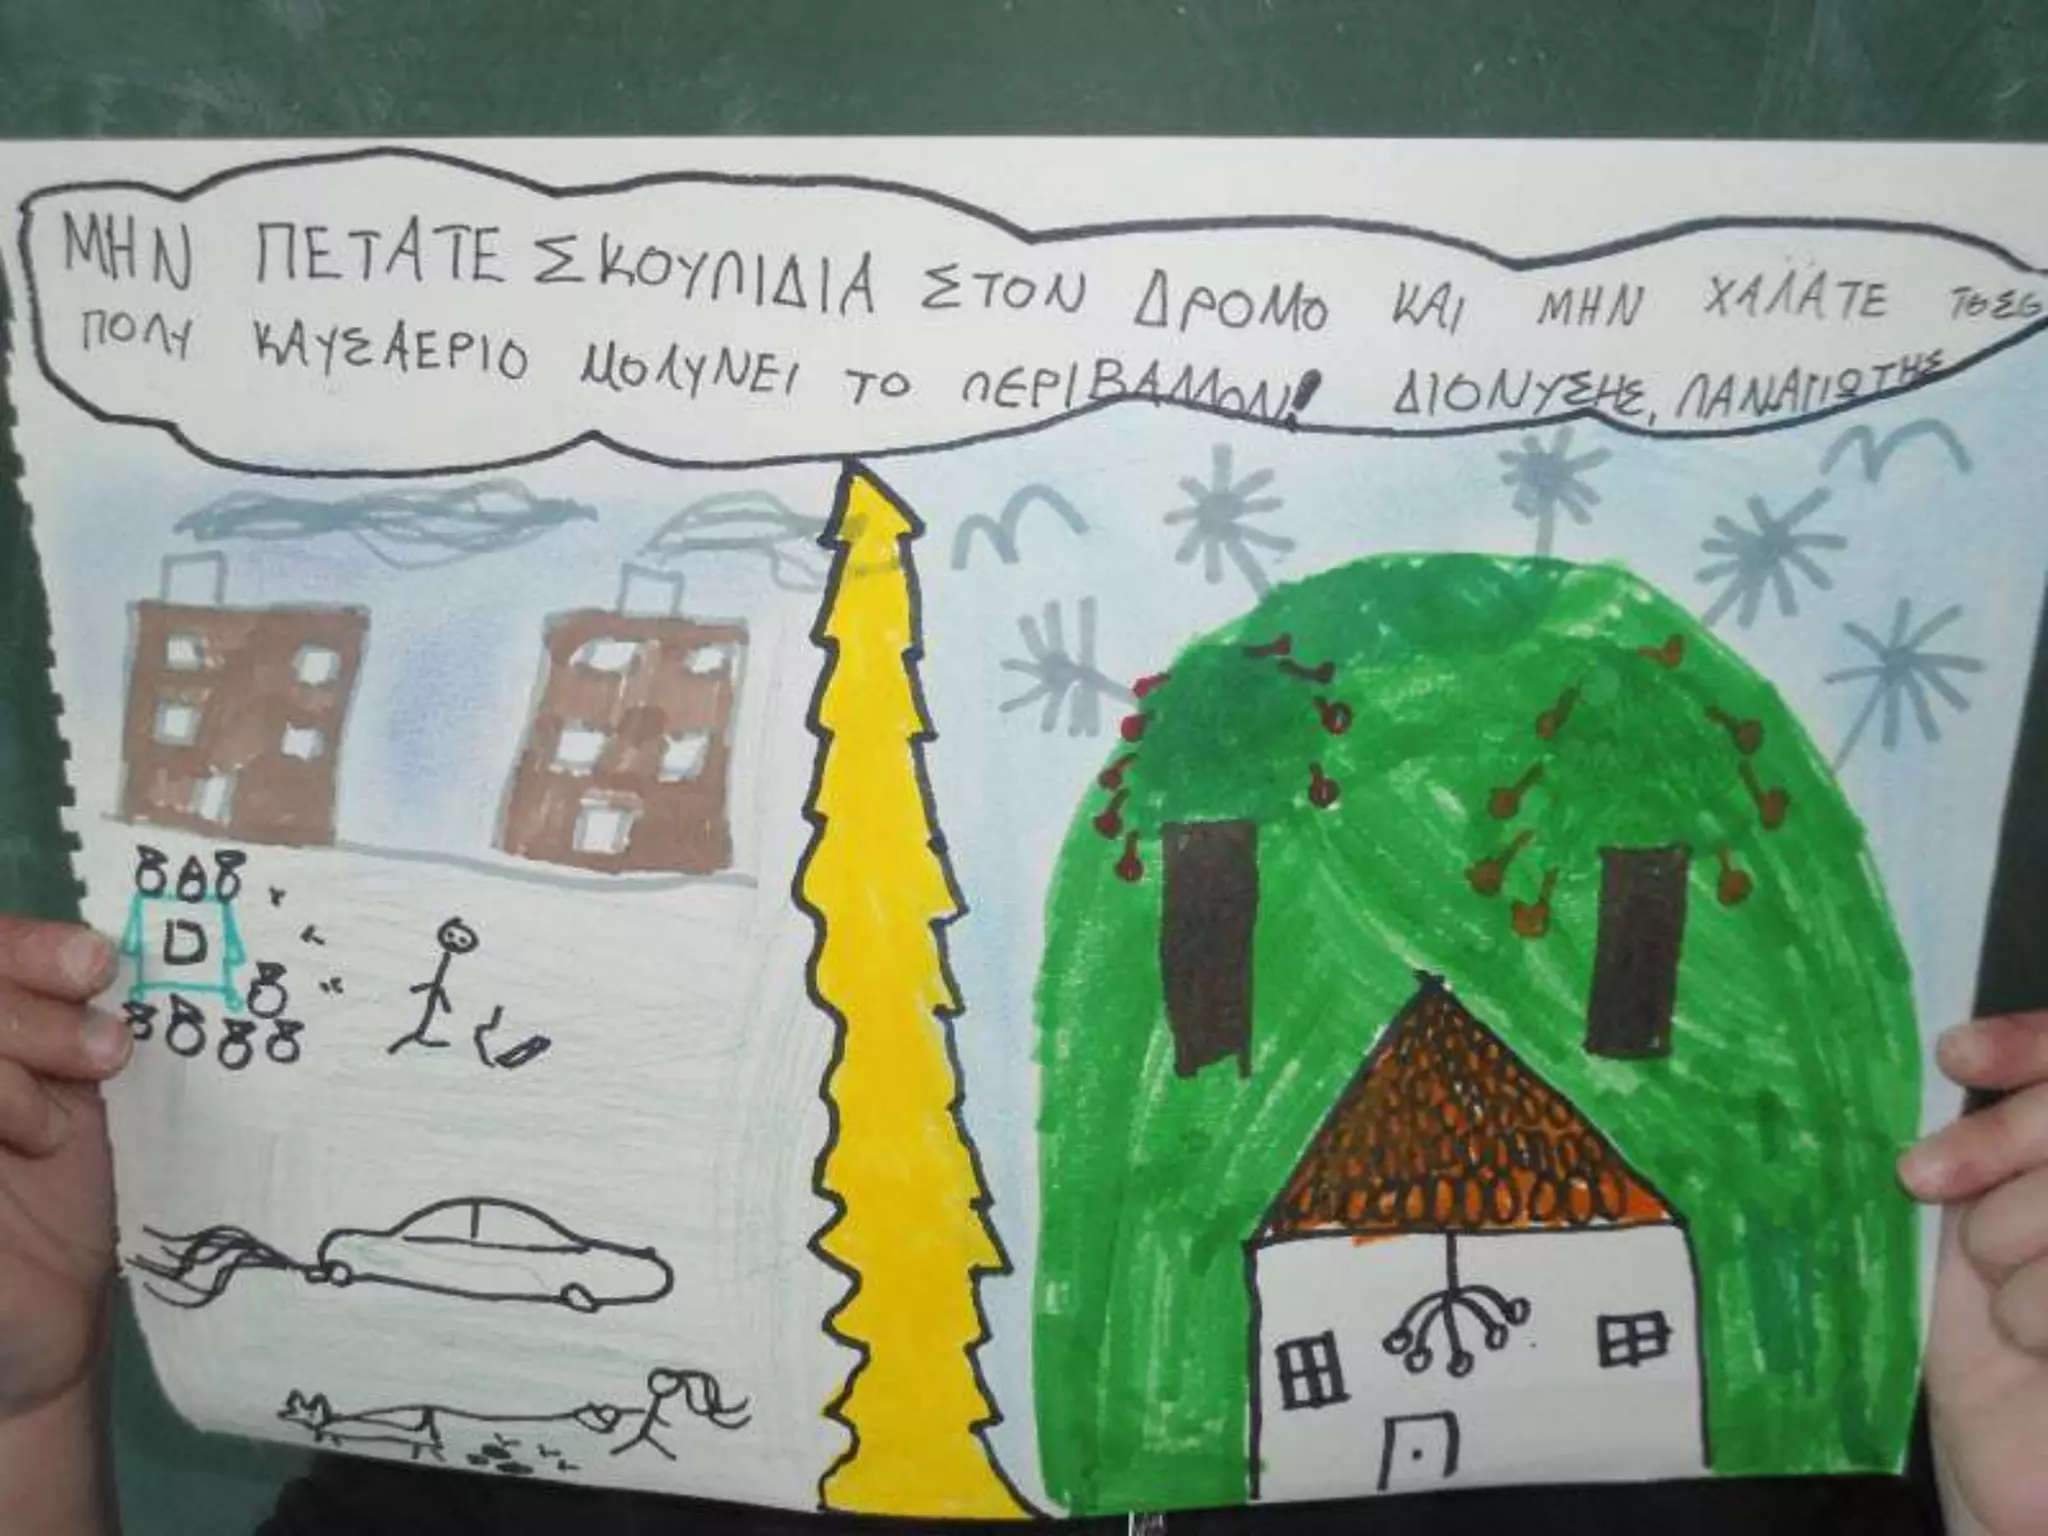 ΜΗΝ ΠΕΤΑΤΕ ΣΚΟΥΠΙΔΙΑ ΣΤΟΝ ΔΡΟΜΟ ΚΑΙ ΜΗΝ ΧΑΛΑΤΕ
ΠΟΛΥ ΚΑΥΣΑΕΡΙΟ ΜΟΛΥΝΕΙ ΤΟ ΠΕΡΙΒΑΛΛΟΝ! ΔΙΟΝΥΣΗΣ, ΠΑΝΑΓΙΩΤΗΣ
D